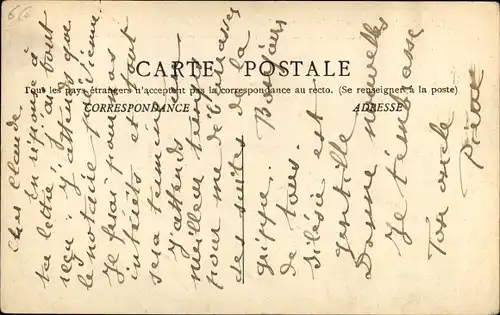 66
CARTE POSTALE
Tous les pays étrangers n'acceptent pas la correspondance au recto. (Se renseigner à la poste)
CORRESPONDANCE
ADRESSE
Cher Claude
En réponse à
ta lettre, j'ai tout
reçu. J'attends que
le notaire
Je ferai pour vos
intérêts et tout
sera terminé.
J'attends un
meilleur temps
pour me débarrasser
des suites de la
grippe. Bonjours
de tous.
est
gentille.
Donne nouvelles
Je t'embrasse
Ton oncle
Pierre